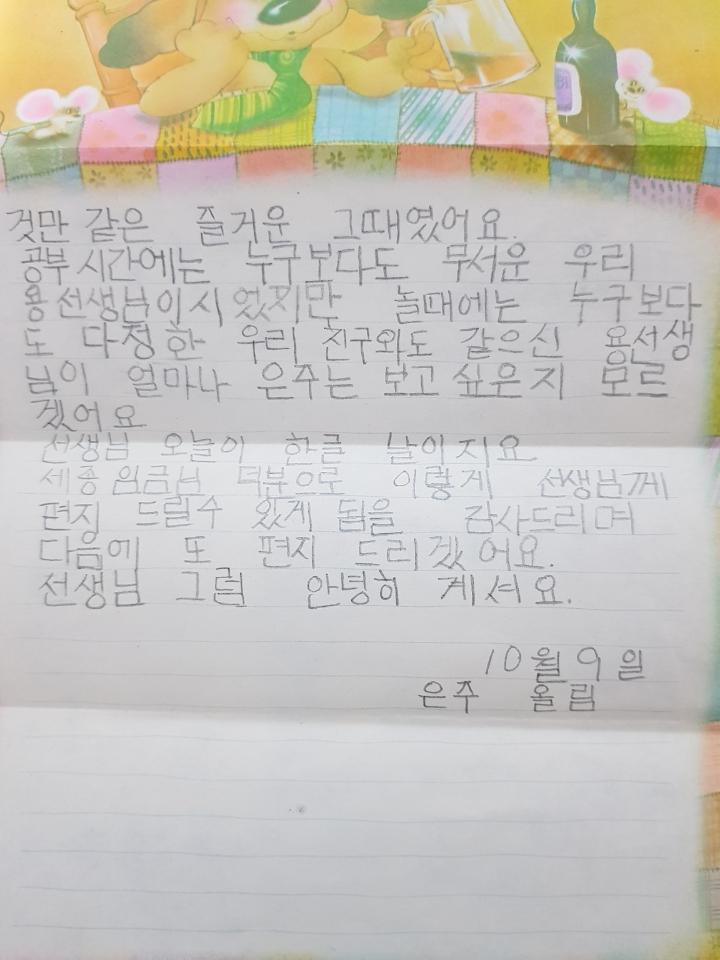 것만 같은 즐거운 그때였어요.
공부 시간에는 누구보다도 무서운 우리
용선생님이시었지만 놀때에는 누구보다
도 다정한 우리 친구와도 같으신 용선생
님이 얼마나 은주는 보고 싶은지 모르
겠어요
선생님 오늘이 한글 날이지요
세종임금님 덕분으로 이렇게 선생님께
편지 드릴수 있게 됨을 감사드리며
다음에 또 편지 드리겠어요.
선생님 그럼 안녕히 계셔요.
10월 9일
은주 올림